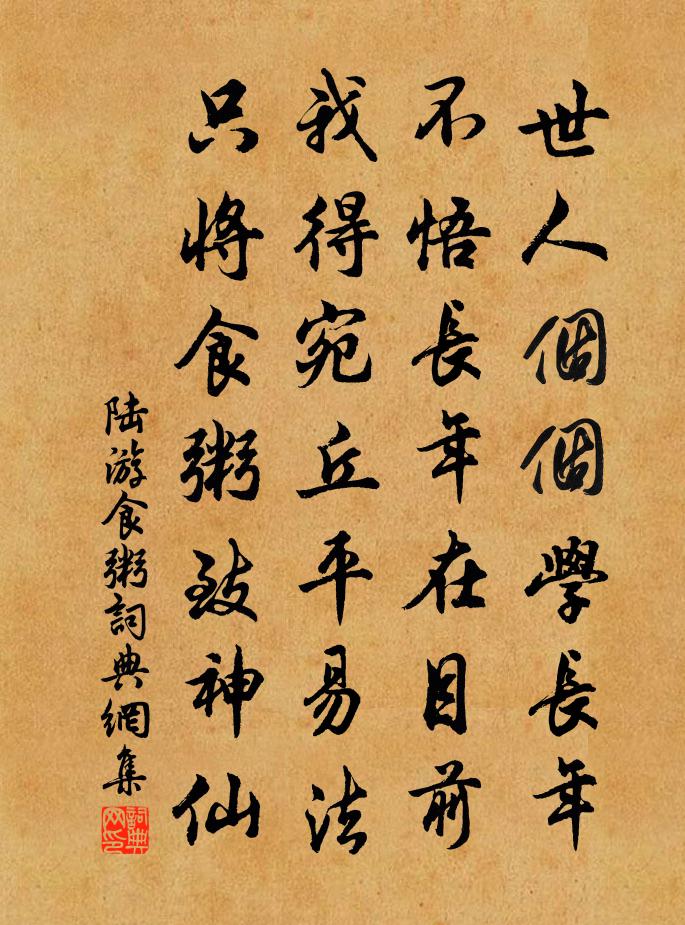 世人個個學長年
不悟長年在目前
我得宛丘平易法
只將食粥致神仙
陆游食粥詞典網集
詞典网印